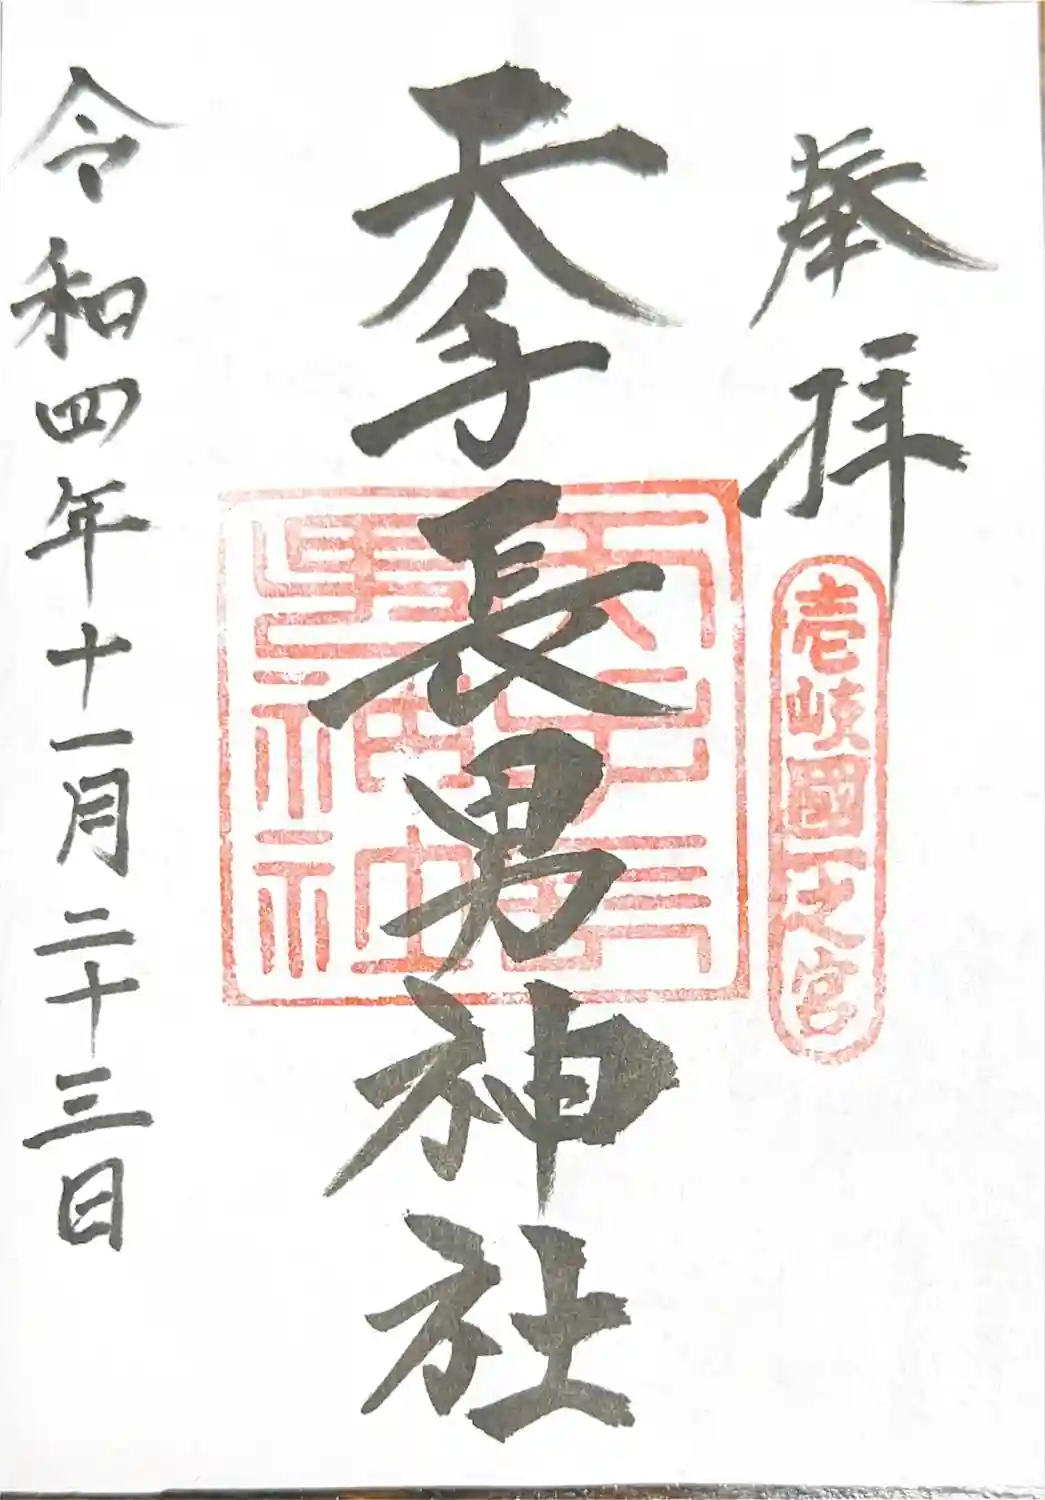 奉拝
壱岐國一之宮
天手長男神社
天手長
男神社
令和四年十一月二十三日